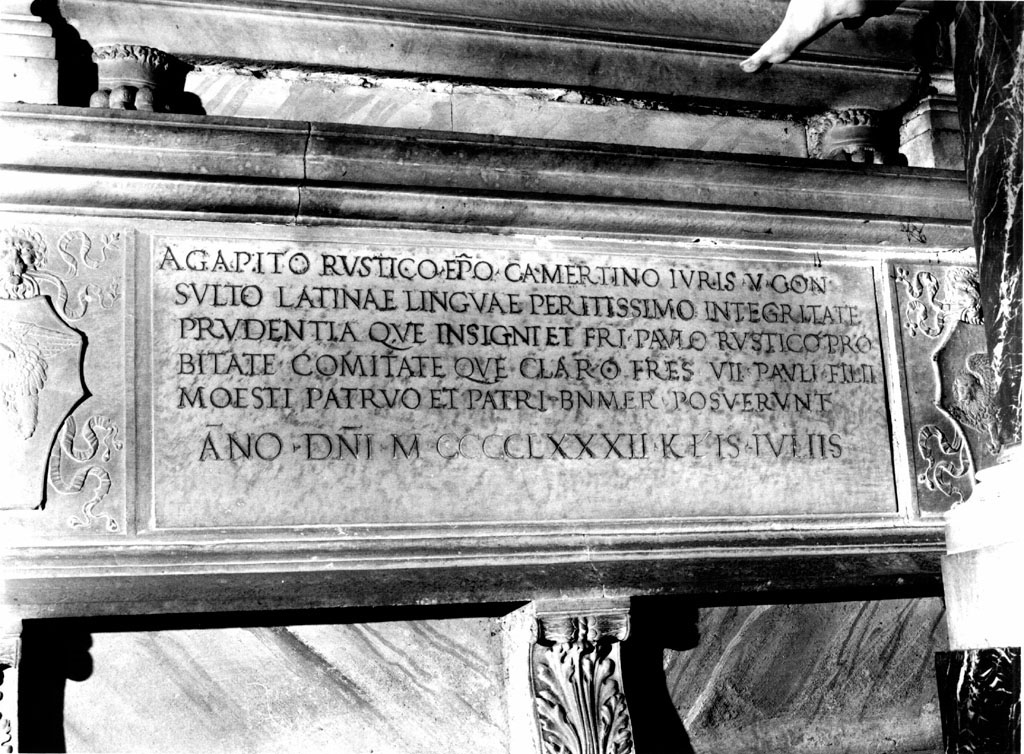 AGAPITO RVSTICO·EP̄O·CAMERTINO IVRIS·V·CON
SVLTO LATINAE LINGVAE PERITISSIMO INTEGRITATE
PRVDENTIA QVE INSIGNI ET FRI·PAVLO RVSTICO·PRO
BITATE COMITATE QVE CLARO FRES VII PAVLI·FILII
MOESTI PATRVO ET PATRI·BNMER POSVERVNT
ĀNO·DN̄I M CCCCLXXXII·KL'IS·IVLIIS